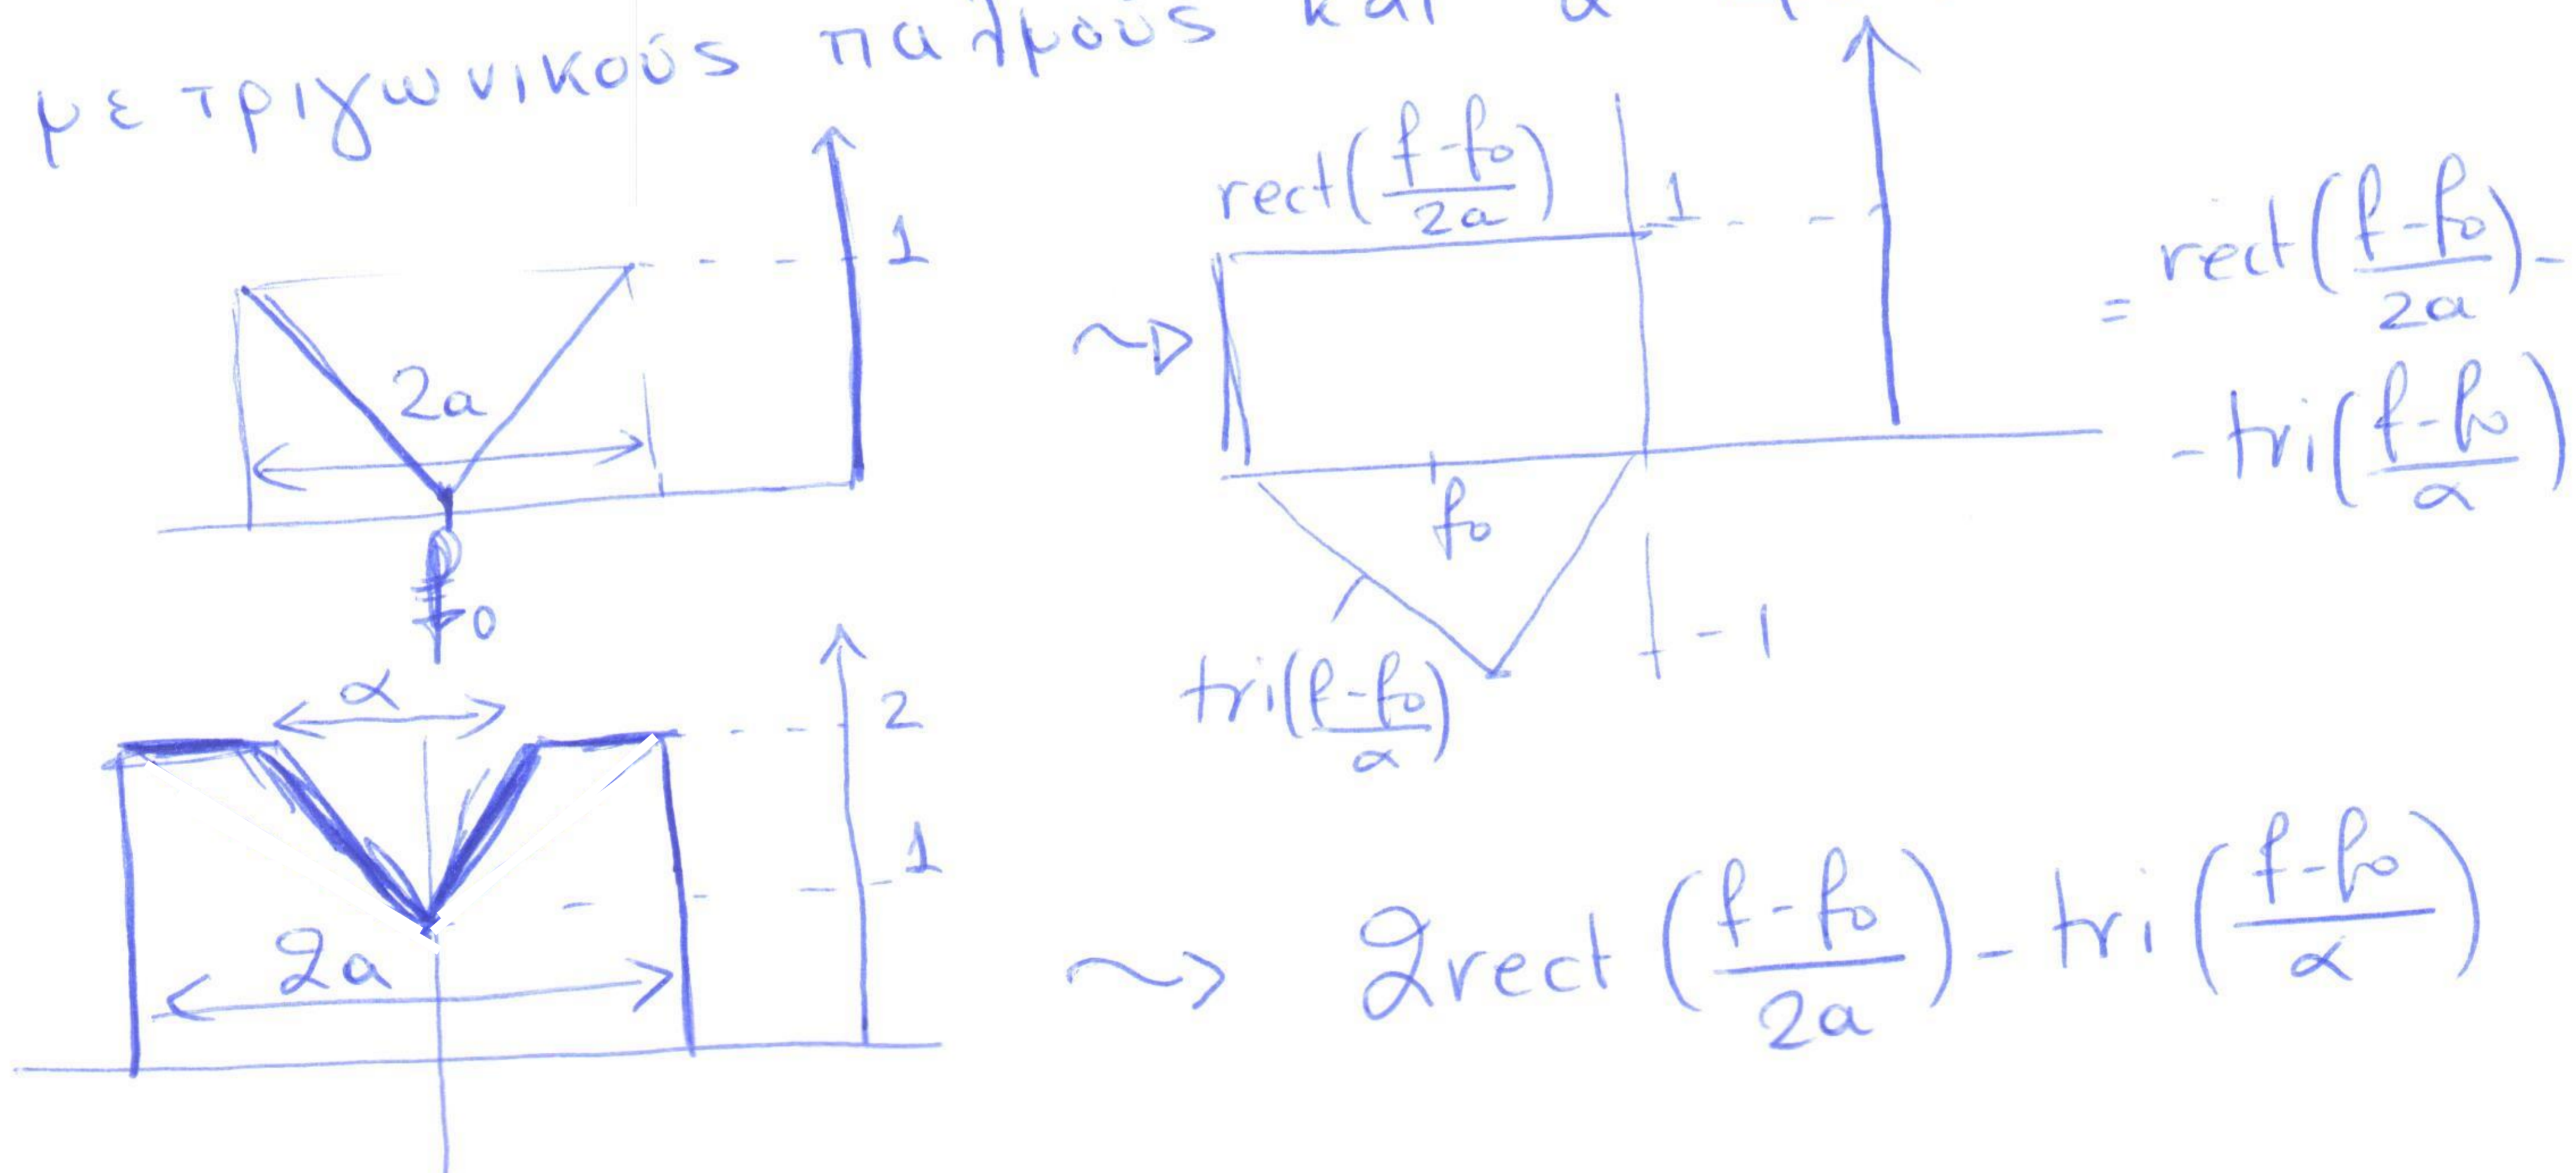 με τριγωνικούς παλμούς και α
1
2a
f0
rect((f-f0)/2a)
1
f0
-1
tri((f-f0)/α)
= rect((f-f0)/2a) -
- tri((f-f0)/α)
α
2
1
2a
2rect((f-f0)/2a) - tri((f-f0)/α)